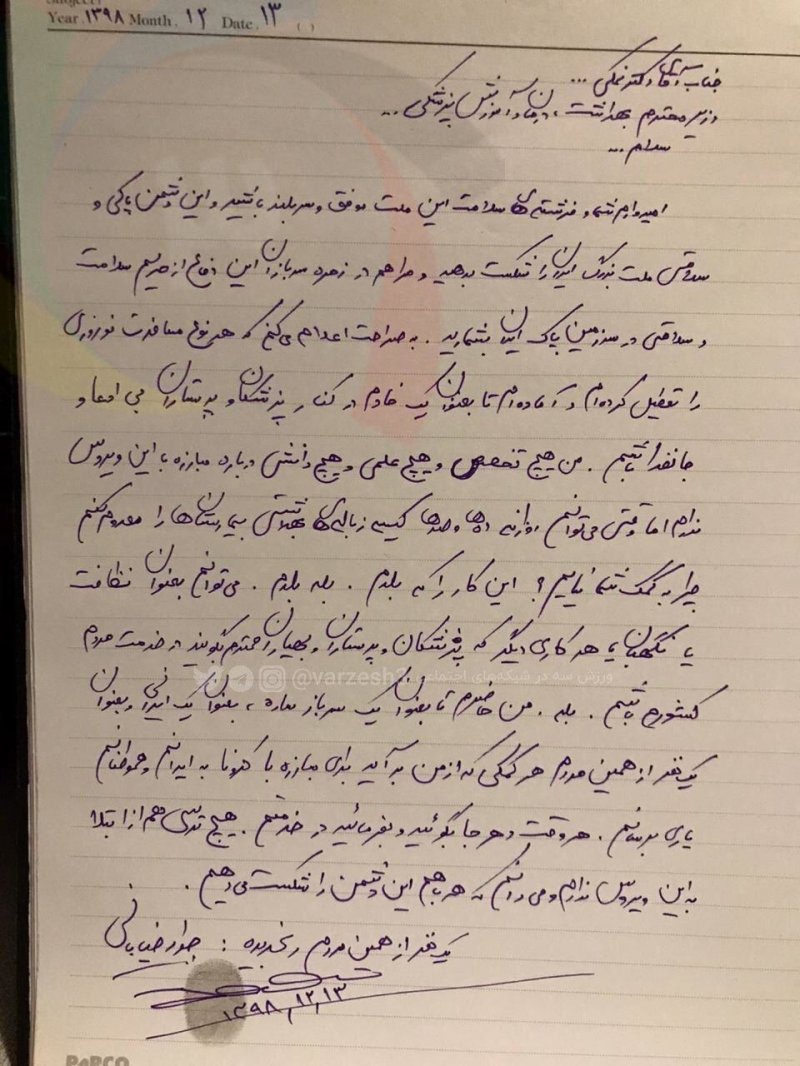 Year. ۱۳۹۸ Month. ۱۲ Date. ۱۳ ( )
جناب آقای دکتر نمکی ...
وزیر محترم بهداشت، درمان و آموزش پزشکی ...
سلام ...
امیدوارم شما و فرشته‌های سلامت این ملت موفق و سربلند باشید و این دشمن پاکی و
سلامتی ملت بزرگ ایران را شکست بدهید و مرا هم در زمره سربازان این دفاع از حریم سلامت
و سلامتی در سرزمین پاک ایران بشمارید. به صراحت اعلام می‌کنم که هر نوع مسافرت نوروزی
را تعطیل کرده‌ام و آماده‌ام تا بعنوان یک خادم در کنار پزشکان و پرستاران بی ادعا و
جانفدا باشم. من هیچ تخصص و هیچ علمی و هیچ دانشی درباره مبارزه با این ویروس
ندارم اما وقتی می‌توانم روزانه ده‌ها و صدها کیسه زباله‌های بهداشتی بیمارستان‌ها را معدوم کنم
چرا به کمک شما نیایم؟ این کار را که بلدم. بله بلدم. می‌توانم بعنوان نظافت
یا نگهبان یا هر کاری دیگر که پزشکان و پرستاران و بهیاران محترم بگویند در خدمت مردم
کشورم باشم. بله. من حاضرم تا بعنوان یک سرباز ساده، بعنوان یک ایرانی و بعنوان
ورزش سه در شبکه‌های اجتماعی @varzesh3
یک نفر از همین مردم هر کمکی که از من برآید برای مبارزه با کرونا به ایرانم و هموطنانم
یاری برسانم. هر وقت و هر جا بگوئید و بفرمائید در خدمتم. هیچ ترسی هم از ابتلا
به این ویروس ندارم و می‌دانم که همه با هم این دشمن را شکست می‌دهیم.
یک نفر از همین مردم رنجدیده: جواد خیابانی
۱۳۹۸,۱۲,۱۳
PAPCO